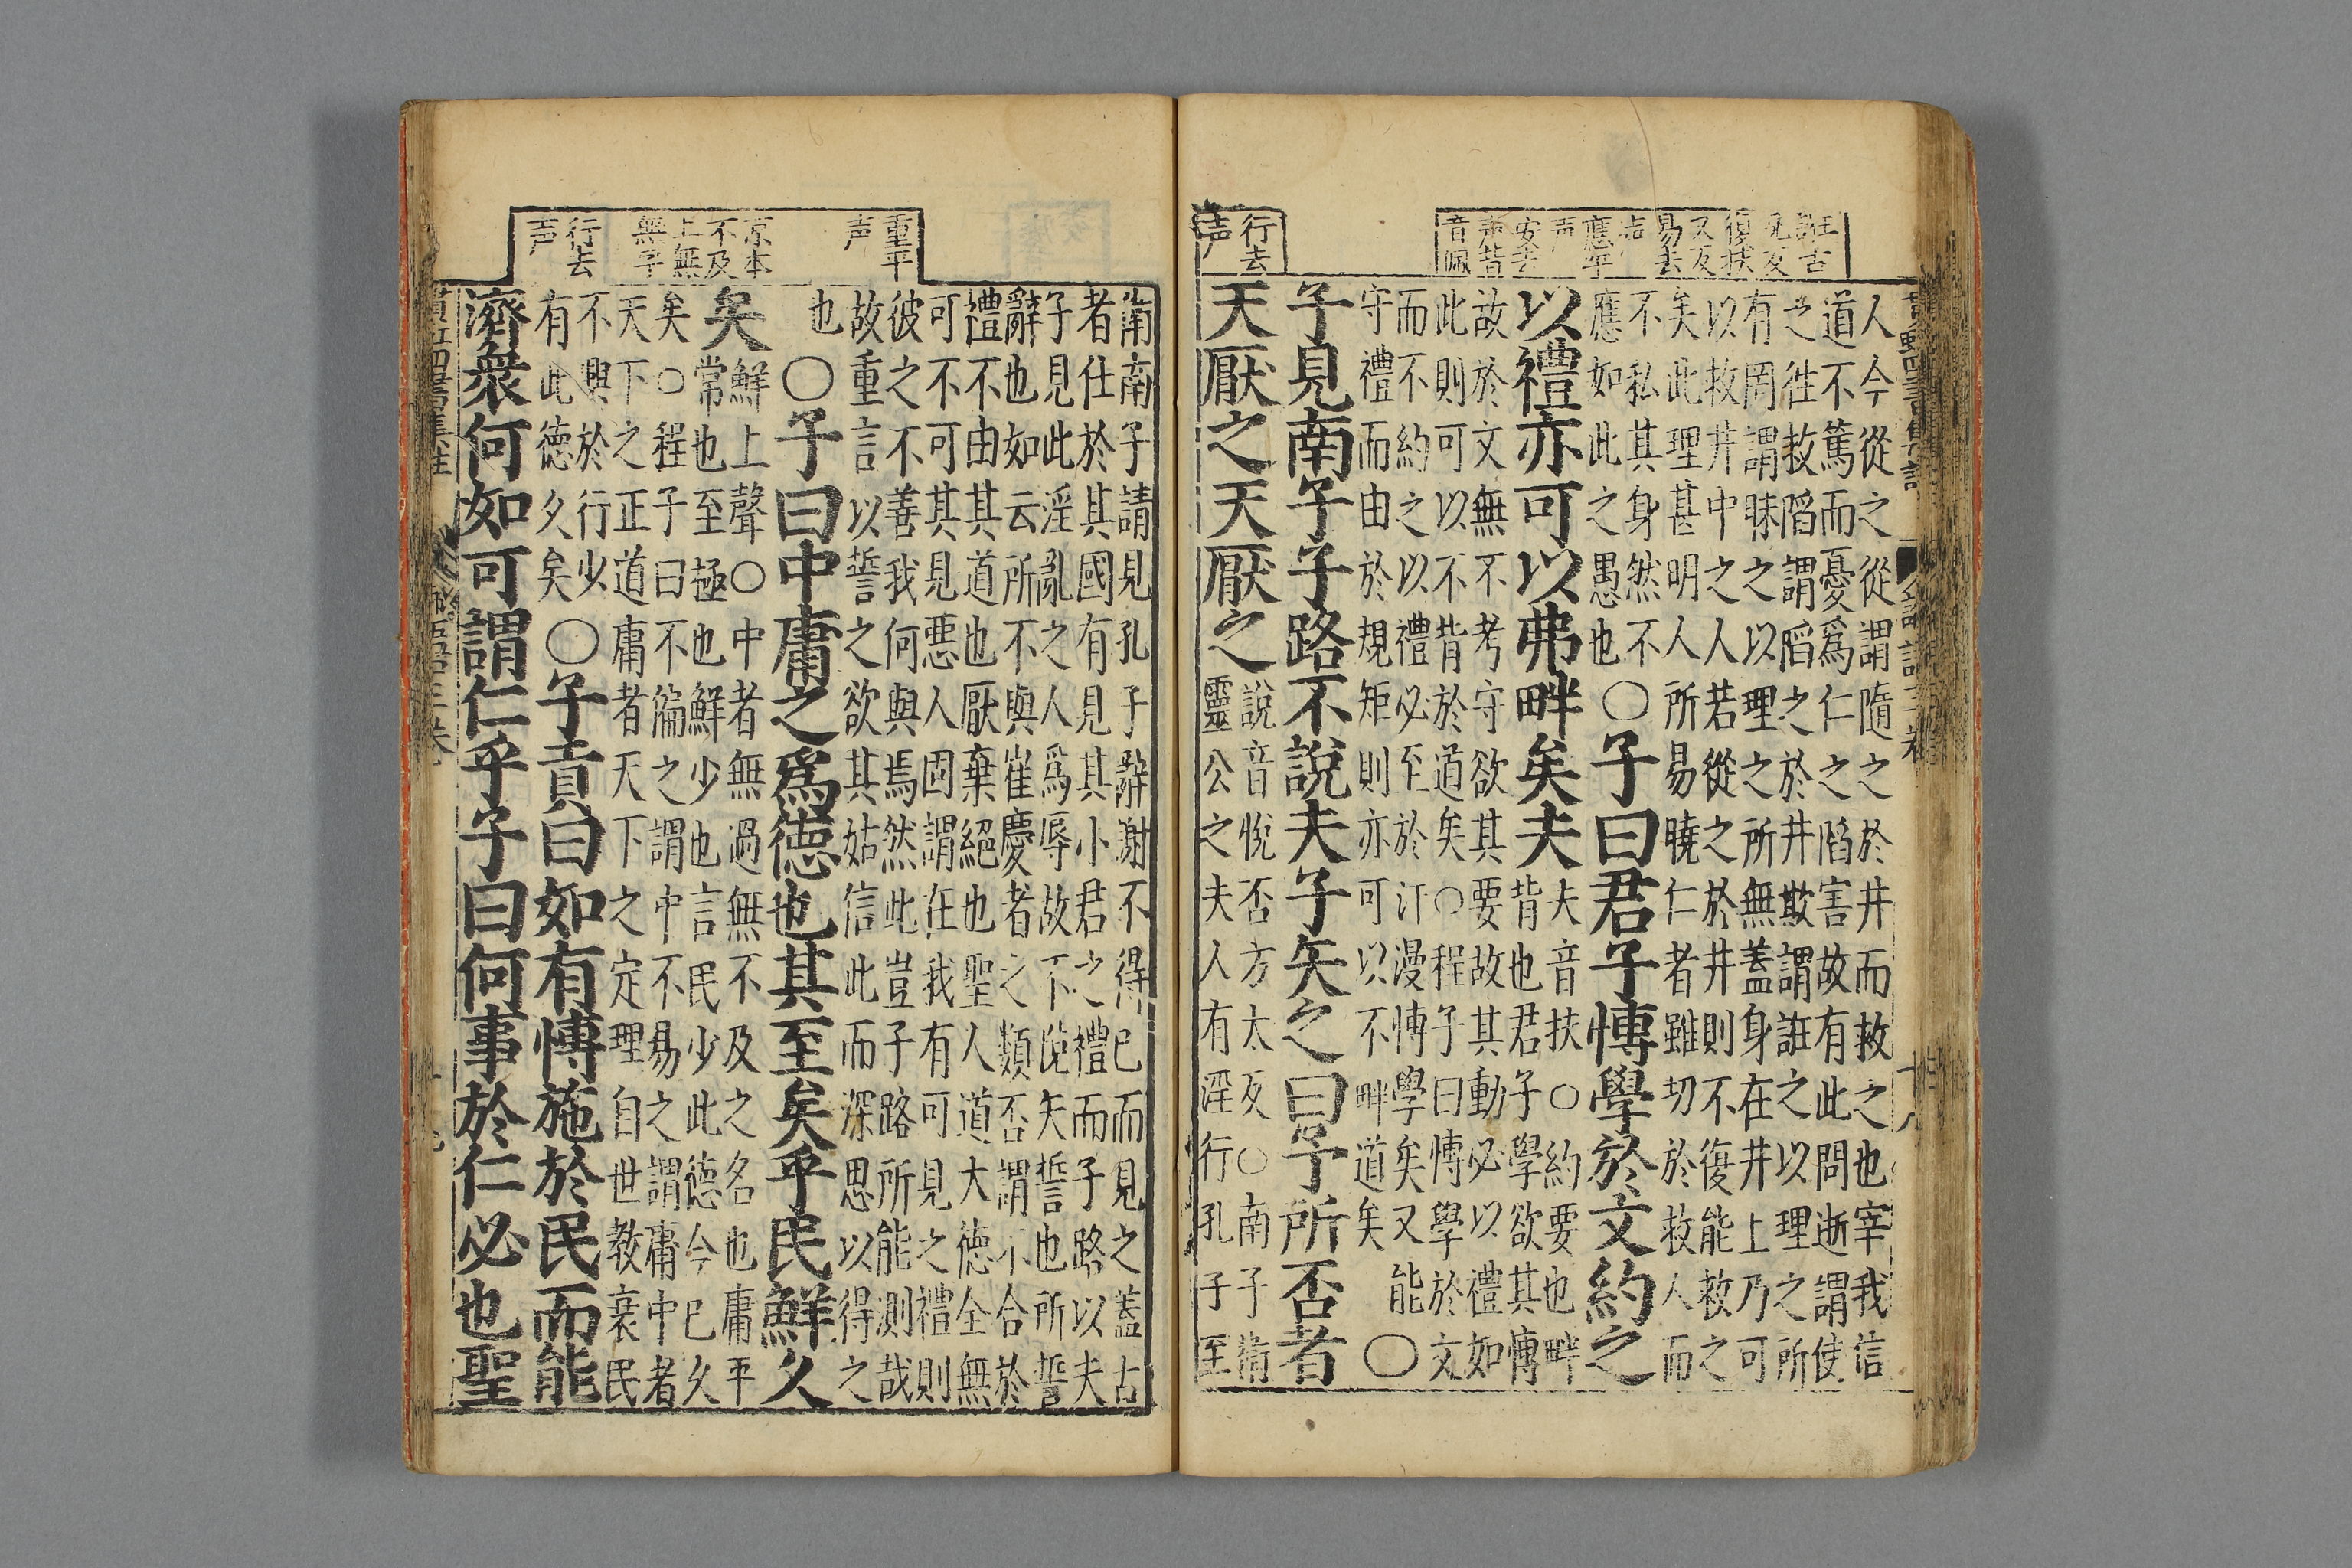 誑古
况反
復扶
又反
易去
声
應平
声
音佩
人今從之從謂隨之於井而救之也宰我信
道不篤而憂爲仁之陷害故有此問逝謂使
之徃救陷謂陷之於井欺謂誑之以理之所
有罔謂昧之以理之所無蓋身在井上乃可
以救井中之人若從之於井則不復能救之
矣此理甚明人所易曉仁者雖切於救人而
不私其身然不
應如此之愚也
〇子曰君子愽學於文約之
以禮亦可以弗畔矣夫
夫音扶〇約要也畔
背也君子學欲其愽
故於文無不考守欲其要故其動必以禮如
此則可以不背於道矣〇程子曰愽學於文
而不約之以禮必至於汗漫愽學矣又能
守禮而由於規矩則亦可以不畔道矣
〇
行去
声
子見南子子路不說夫子矢之曰予所否者
天厭之天厭之
說音悅否方太反〇南子衛
靈公之夫人有淫行孔子至
重平
声
京本
不及
上無
無字
行去
声
衛南子請見孔子辭謝不得已而見之蓋古
者仕於其國有見其小君之禮而子路以夫
子見此淫亂之人爲辱故不說矢誓也所誓
辭也如云所不與崔慶者之類否謂不合於
禮不由其道也厭棄絕也聖人道大徳全無
可不可其見惡人固謂在我有可見之禮則
彼之不善我何與焉然此豈子路所能測哉
故重言以誓之欲其姑信此而深思以得之
也
〇子曰中庸之爲徳也其至矣乎民鮮久
矣
鮮上聲〇中者無過無不及之名也庸平
常也至極也鮮少也言民少此德今已久
矣〇程子曰不偏之謂中不易之謂庸中者
天下之正道庸者天下之定理自世教衰民
不興於行少
有此徳久矣
〇子貢曰如有愽施於民而能
濟衆何如可謂仁乎子曰何事於仁必也聖